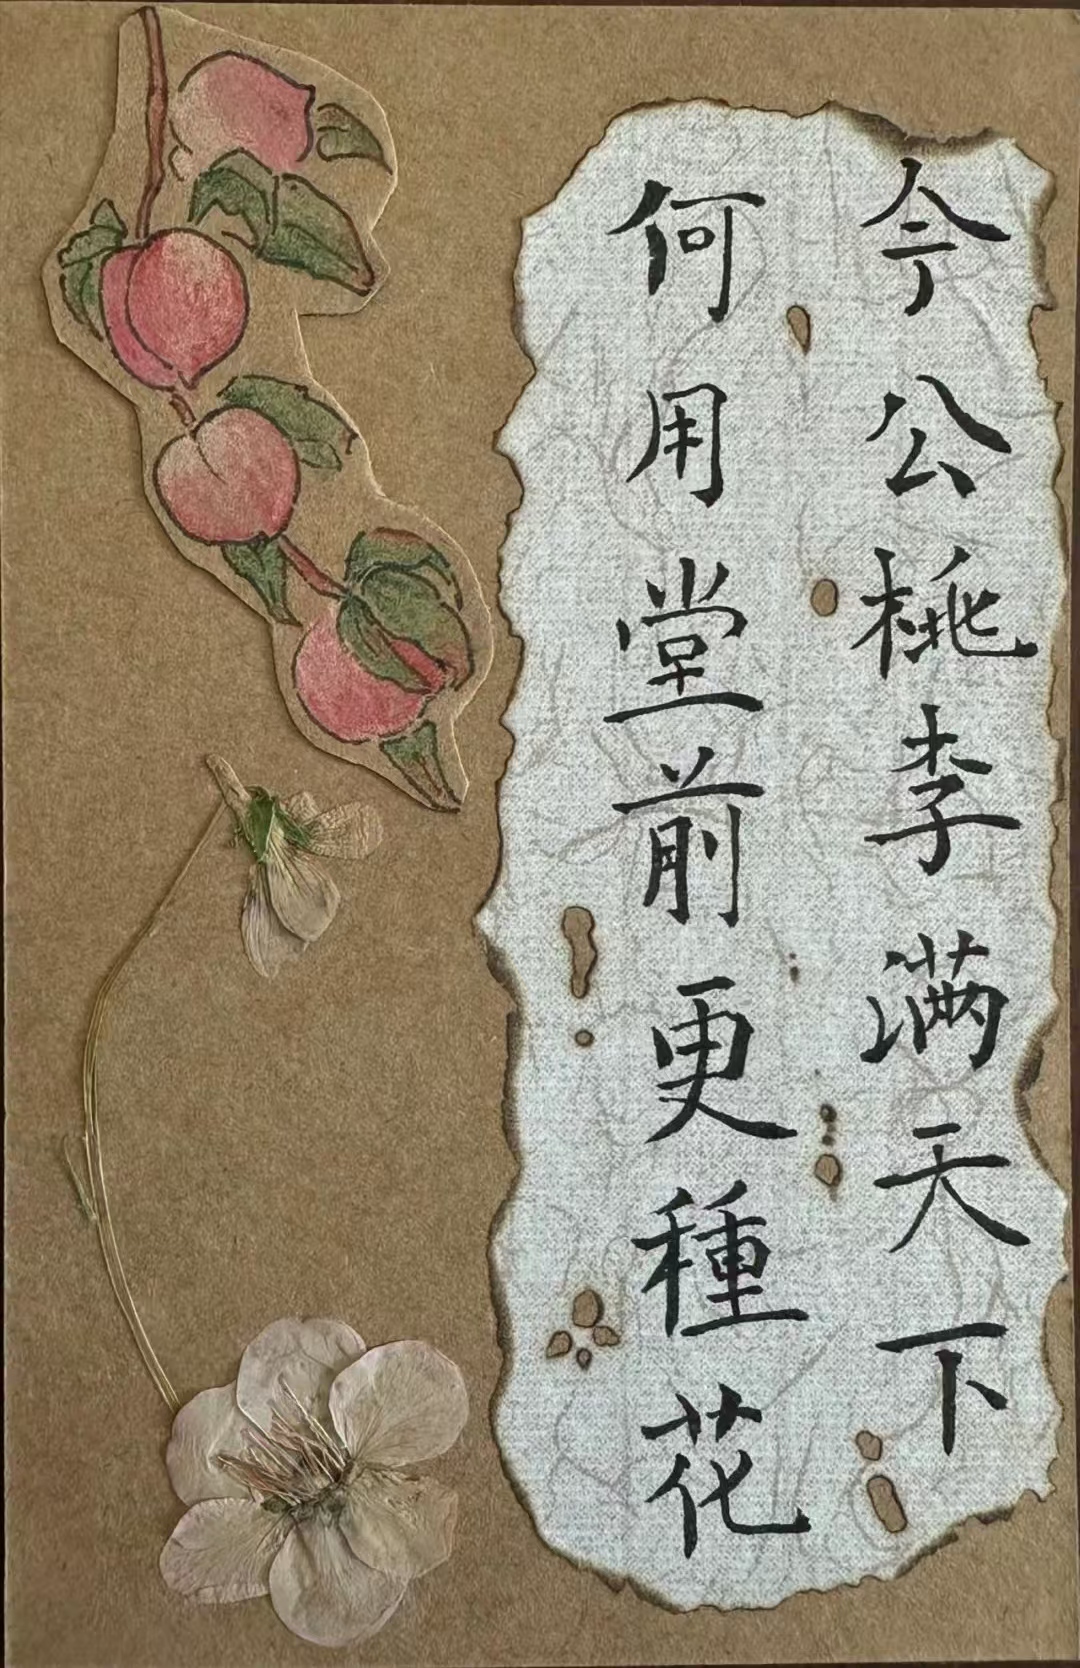 今公桃李满天下
何用堂前更種花